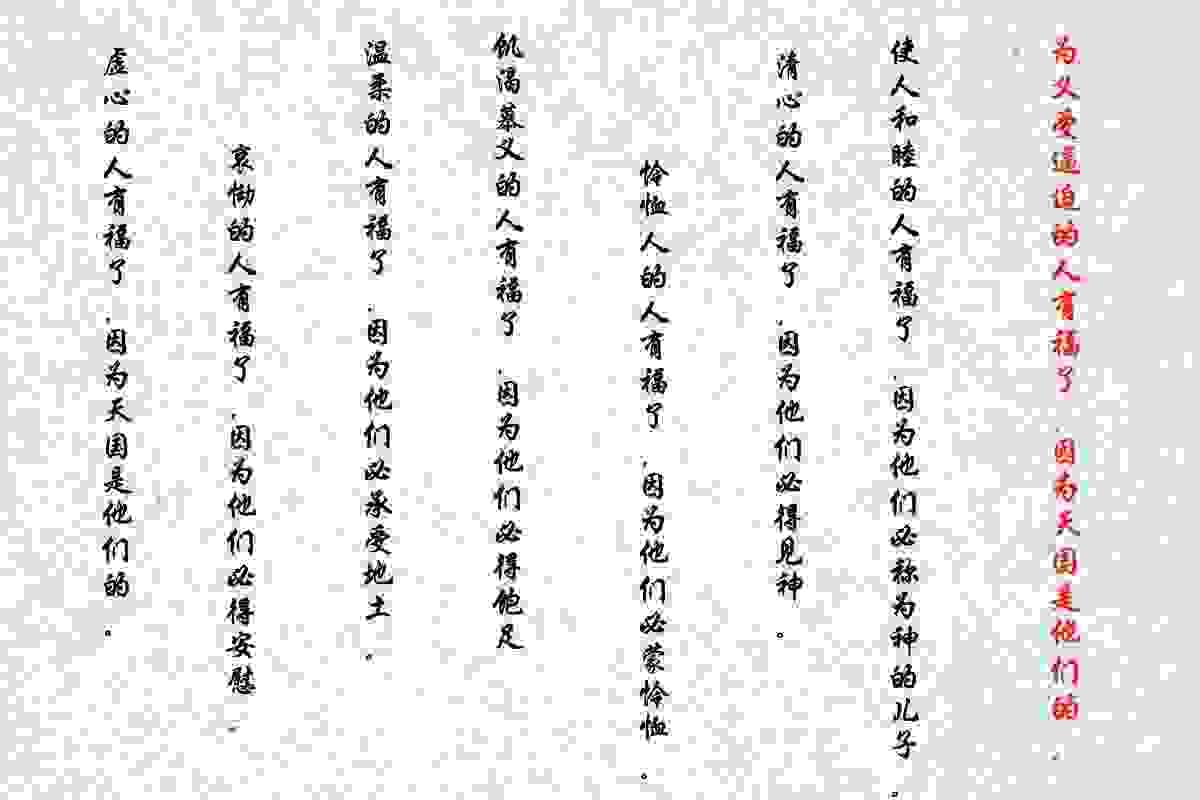 虚心的人有福了，因为天国是他们的。
哀恸的人有福了，因为他们必得安慰。
温柔的人有福了，因为他们必承受地土。
饥渴慕义的人有福了，因为他们必得饱足
怜恤人的人有福了，因为他们必蒙怜恤。
清心的人有福了，因为他们必得见神。
使人和睦的人有福了，因为他们必称为神的儿子。
为义受逼迫的人有福了，因为天国是他们的。